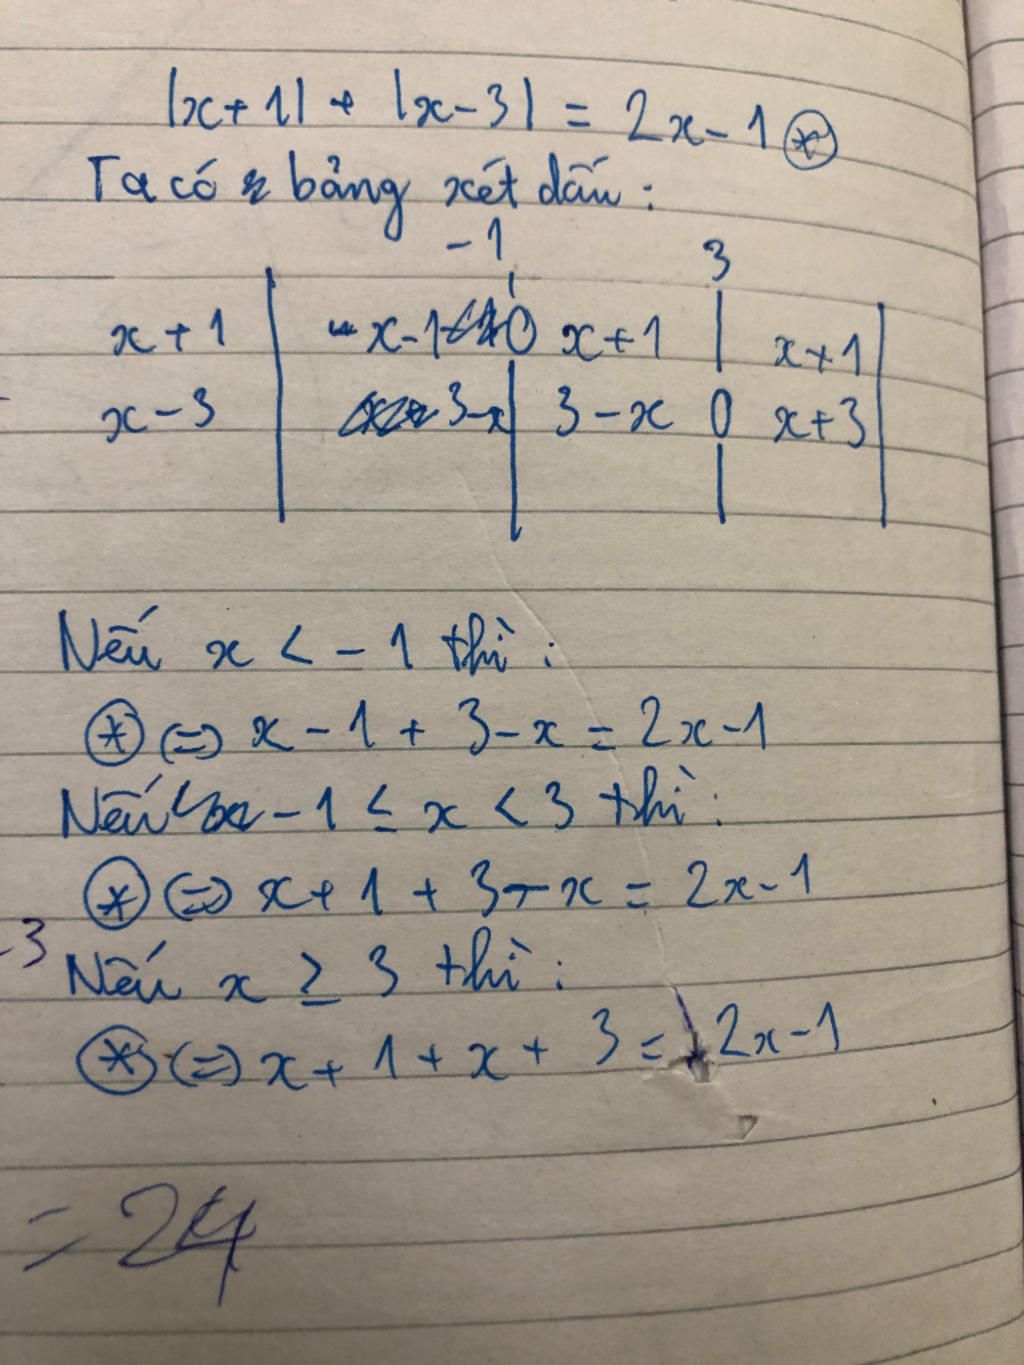 |x+1| + |x-3| = 2x-1 (*)
Ta có bảng xét dấu:
-1 3
x+1 -x-1 0 x+1 | x+1
x-3 3-x | 3-x 0 x+3
Nếu x < -1 thì:
(*) (=) x-1+3-x = 2x-1
Nếu -1 ≤ x < 3 thì:
(*) (=) x+1+3-x = 2x-1
-3
Nếu x ≥ 3 thì:
(*) (=) x+1+x+3 = 2x-1
= 24